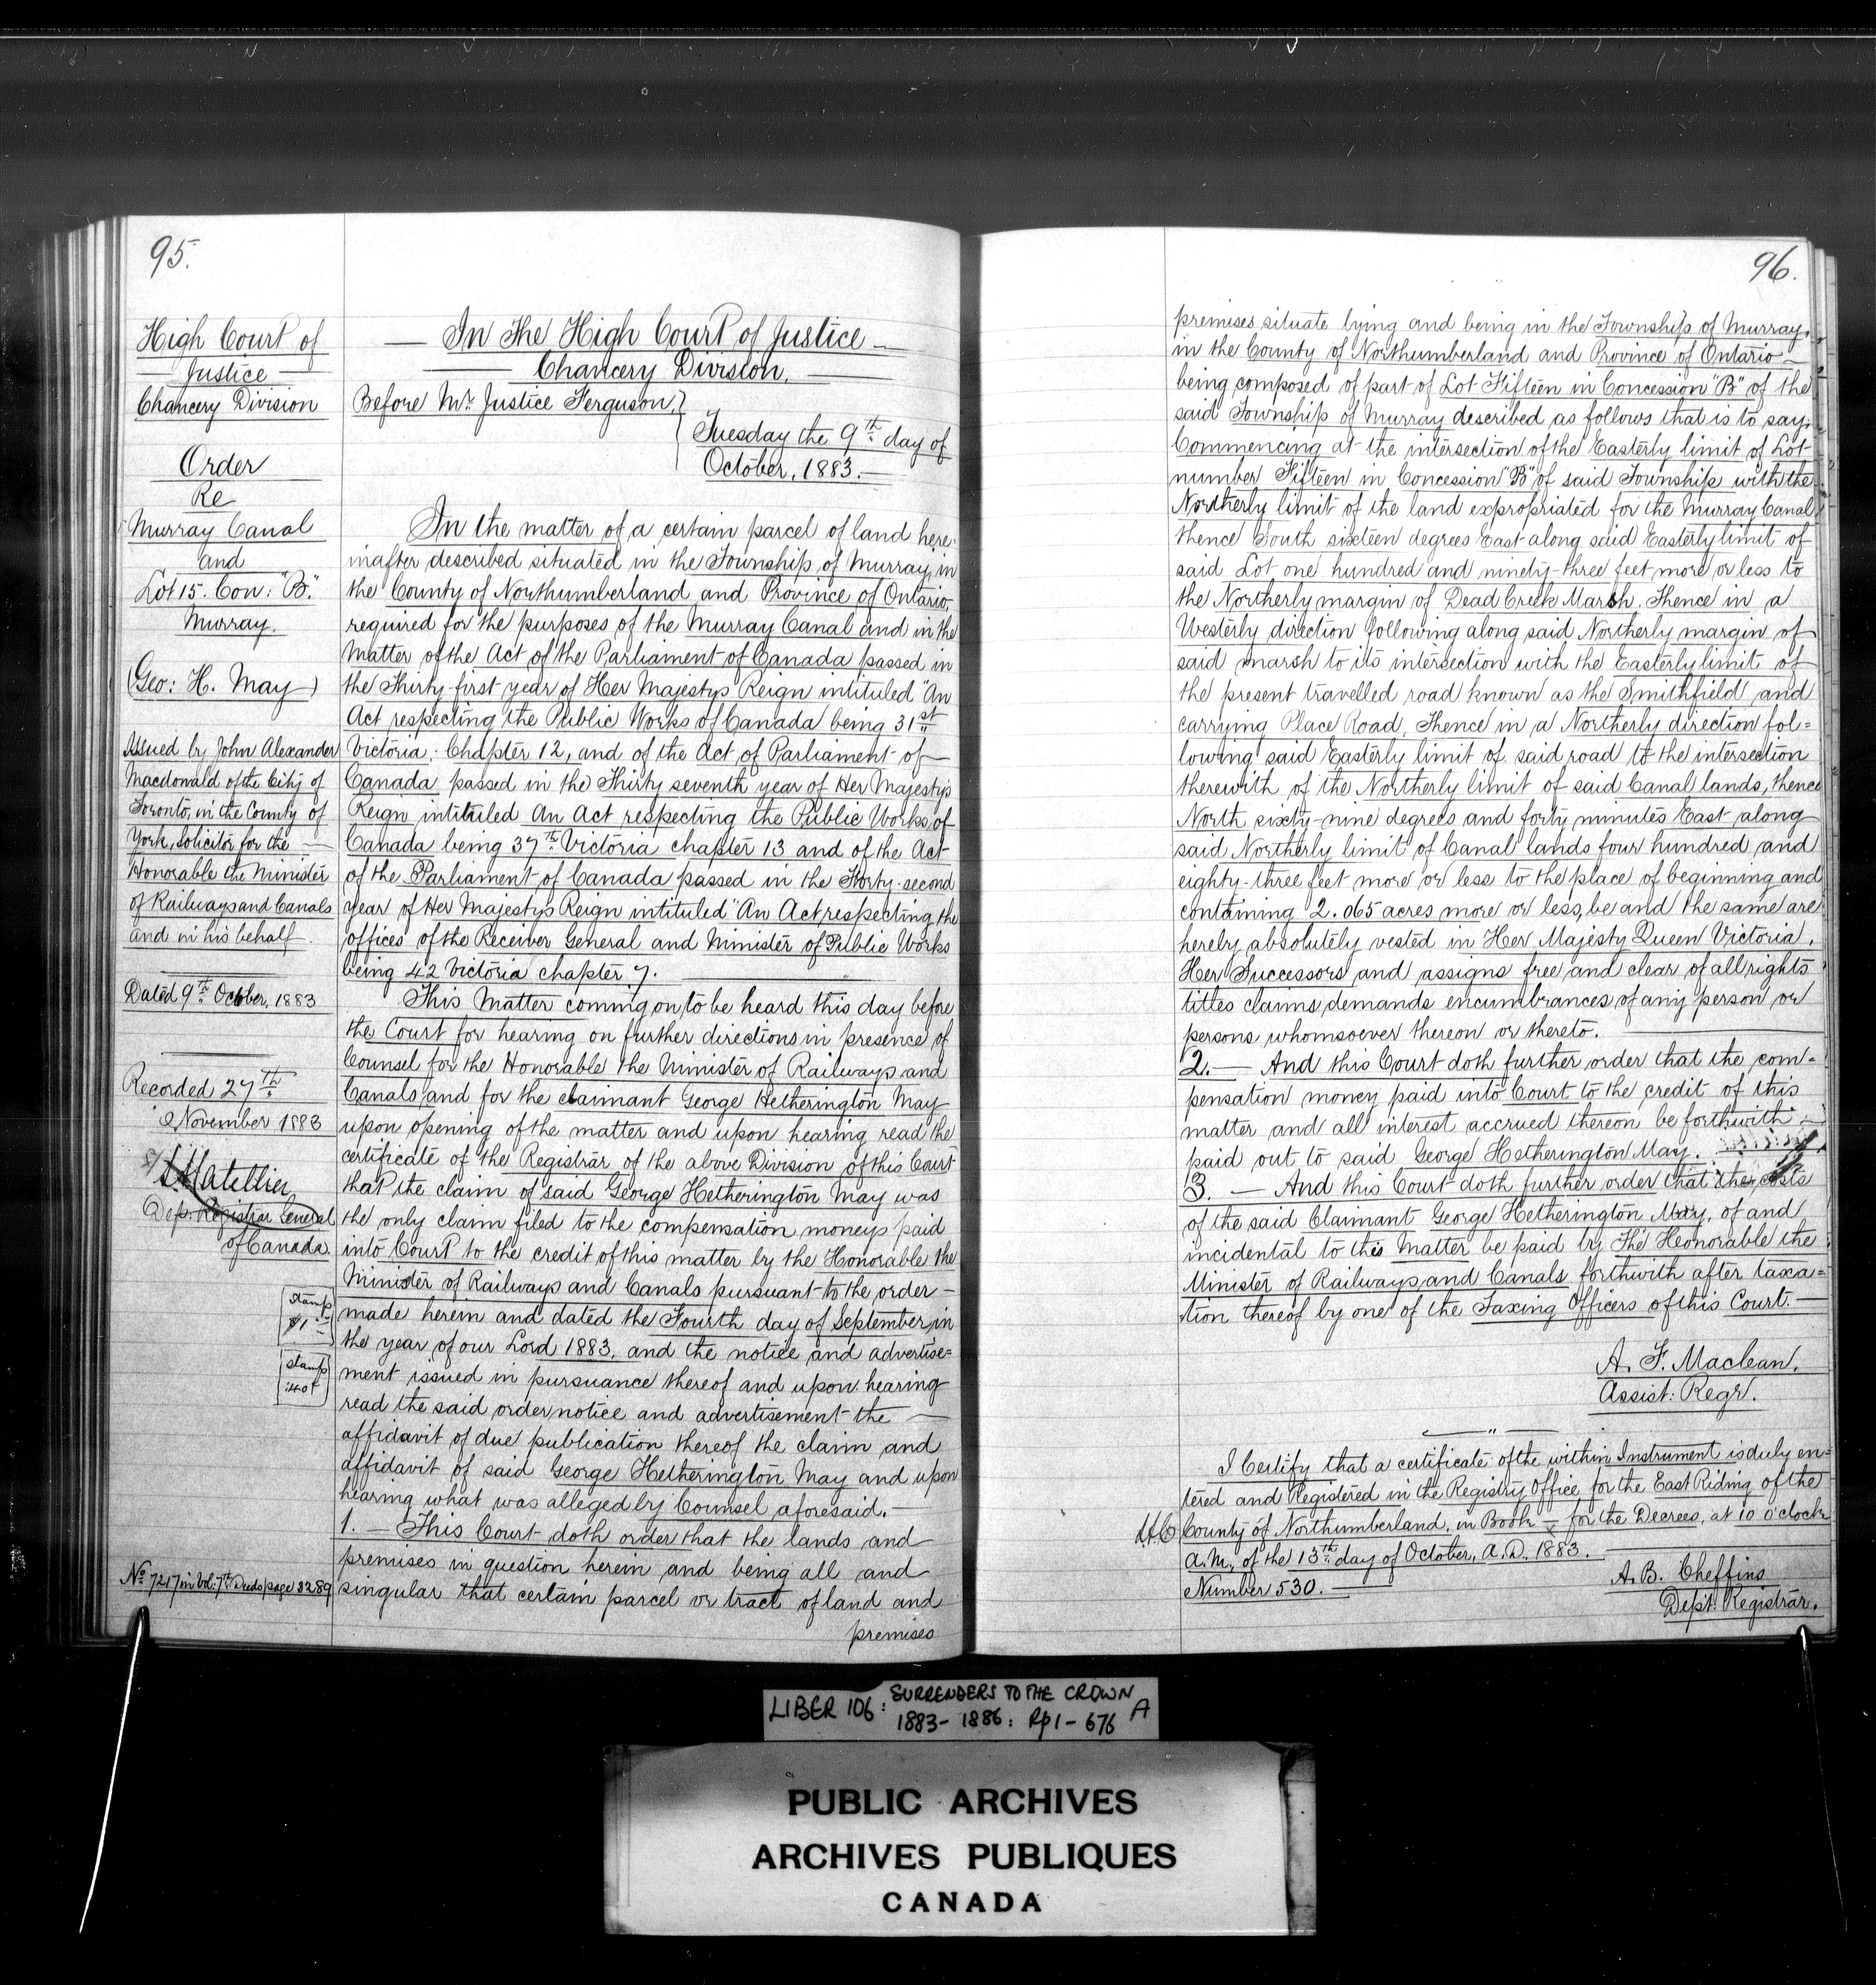 95.
High Court of
Justice
Chancery Division
Order
Re
Murray Canal
and
Lot 15. Con: "B."
Murray.
(Geo: H. May)
Issued by John Alexander
Macdonald of the City of
Toronto, in the County of
York, Solicitor for the
Honorable the Minister
of Railways and Canals
and in his behalf.
Dated 9th October, 1883
Recorded 27th
November 1883
Dep. Registrar General
of Canada.
Stamp
$1
Stamp
No 7217 in Vol: 7th Deeds page 3289
In The High Court of Justice
Chancery Division.
Before Mr Justice Ferguson,
Tuesday the 9th day of
October, 1883.
In the matter of a certain parcel of land here-
inafter described situated in the Township of Murray, in
the County of Northumberland and Province of Ontario,
required for the purposes of the Murray Canal and in the
Matter of the Act of the Parliament of Canada passed in
the Thirty-first year of Her Majesty's Reign intituled "An
Act respecting the Public Works of Canada being 31st
Victoria: Chapter 12, and of the Act of Parliament of
Canada passed in the Thirty seventh year of Her Majesty's
Reign intituled An Act respecting the Public Works of
Canada being 37th Victoria chapter 13 and of the Act
of the Parliament of Canada passed in the Forty-second
year of Her Majesty's Reign intituled "An Act respecting the
offices of the Receiver General and Minister of Public Works
being 42 Victoria chapter 7.
This Matter coming on to be heard this day before
the Court for hearing on further directions in presence of
Counsel for the Honorable the Minister of Railways and
Canals and for the claimant George Hetherington May
upon opening of the matter and upon hearing read the
certificate of the Registrar of the above Division of this Court
that the claim of said George Hetherington May was
the only claim filed to the compensation moneys paid
into Court to the credit of this matter by the Honorable the
Minister of Railways and Canals pursuant to the order
made herein and dated the Fourth day of September, in
the year of our Lord 1883, and the notice and advertise=
ment issued in pursuance thereof and upon hearing
read the said order notice and advertisement the
affidavit of due publication thereof the claim and
affidavit of said George Hetherington May and upon
hearing what was alleged by Counsel aforesaid.
1. — This Court doth order that the lands and
premises in question herein and being all and
singular that certain parcel or tract of land and
premises
96.
premises situate lying and being in the Township of Murray,
in the County of Northumberland and Province of Ontario
being composed of part of Lot Fifteen in Concession "B" of the
said Township of Murray described as follows that is to say;
Commencing at the intersection of the Easterly limit of Lot
number Fifteen in Concession "B" of said Township with the
Northerly limit of the land expropriated for the Murray Canal
thence South sixteen degrees East along said Easterly limit of
said Lot one hundred and ninety-three feet more or less to
the Northerly margin of Dead Creek Marsh. Thence in a
Westerly direction following along said Northerly margin of
said marsh to its intersection with the Easterly limit of
the present travelled road known as the Smithfield and
carrying Place Road, Thence in a Northerly direction fol=
lowing said Easterly limit of said road to the intersection
therewith of the Northerly limit of said Canal lands, thence
North sixty-nine degrees and forty minutes East along
said Northerly limit of Canal lands four hundred and
eighty-three feet more or less to the place of beginning and
containing 2.065 acres more or less, be and the same are
hereby absolutely vested in Her Majesty Queen Victoria,
Her Successors and assigns free and clear of all rights
titles claims demands encumbrances of any person or
persons whomsoever thereon or thereto.
2. — And this Court doth further order that the com=
pensation money paid into Court to the credit of this
matter and all interest accrued thereon be forthwith
paid out to said George Hetherington May.
3. — And this Court doth further order that the costs
of the said Claimant George Hetherington May, of and
incidental to this Matter be paid by the Honorable the
Minister of Railways and Canals forthwith after taxa=
tion thereof by one of the Taxing Officers of this Court.
A. F. Maclean.
Assist: Regr.
I Certify that a certificate of the within Instrument is duly en=
tered and Registered in the Registry Office for the East Riding of the
County of Northumberland, in Book — for the Decrees, at 10 o'clock
A.M. of the 13th day of October, A.D. 1883.
Number 530.
A. B. Cheffins
Dept. Registrar.
LIBER 106: SURRENDERS TO THE CROWN
1883-1886: Rp1-676 A
PUBLIC ARCHIVES
ARCHIVES PUBLIQUES
CANADA